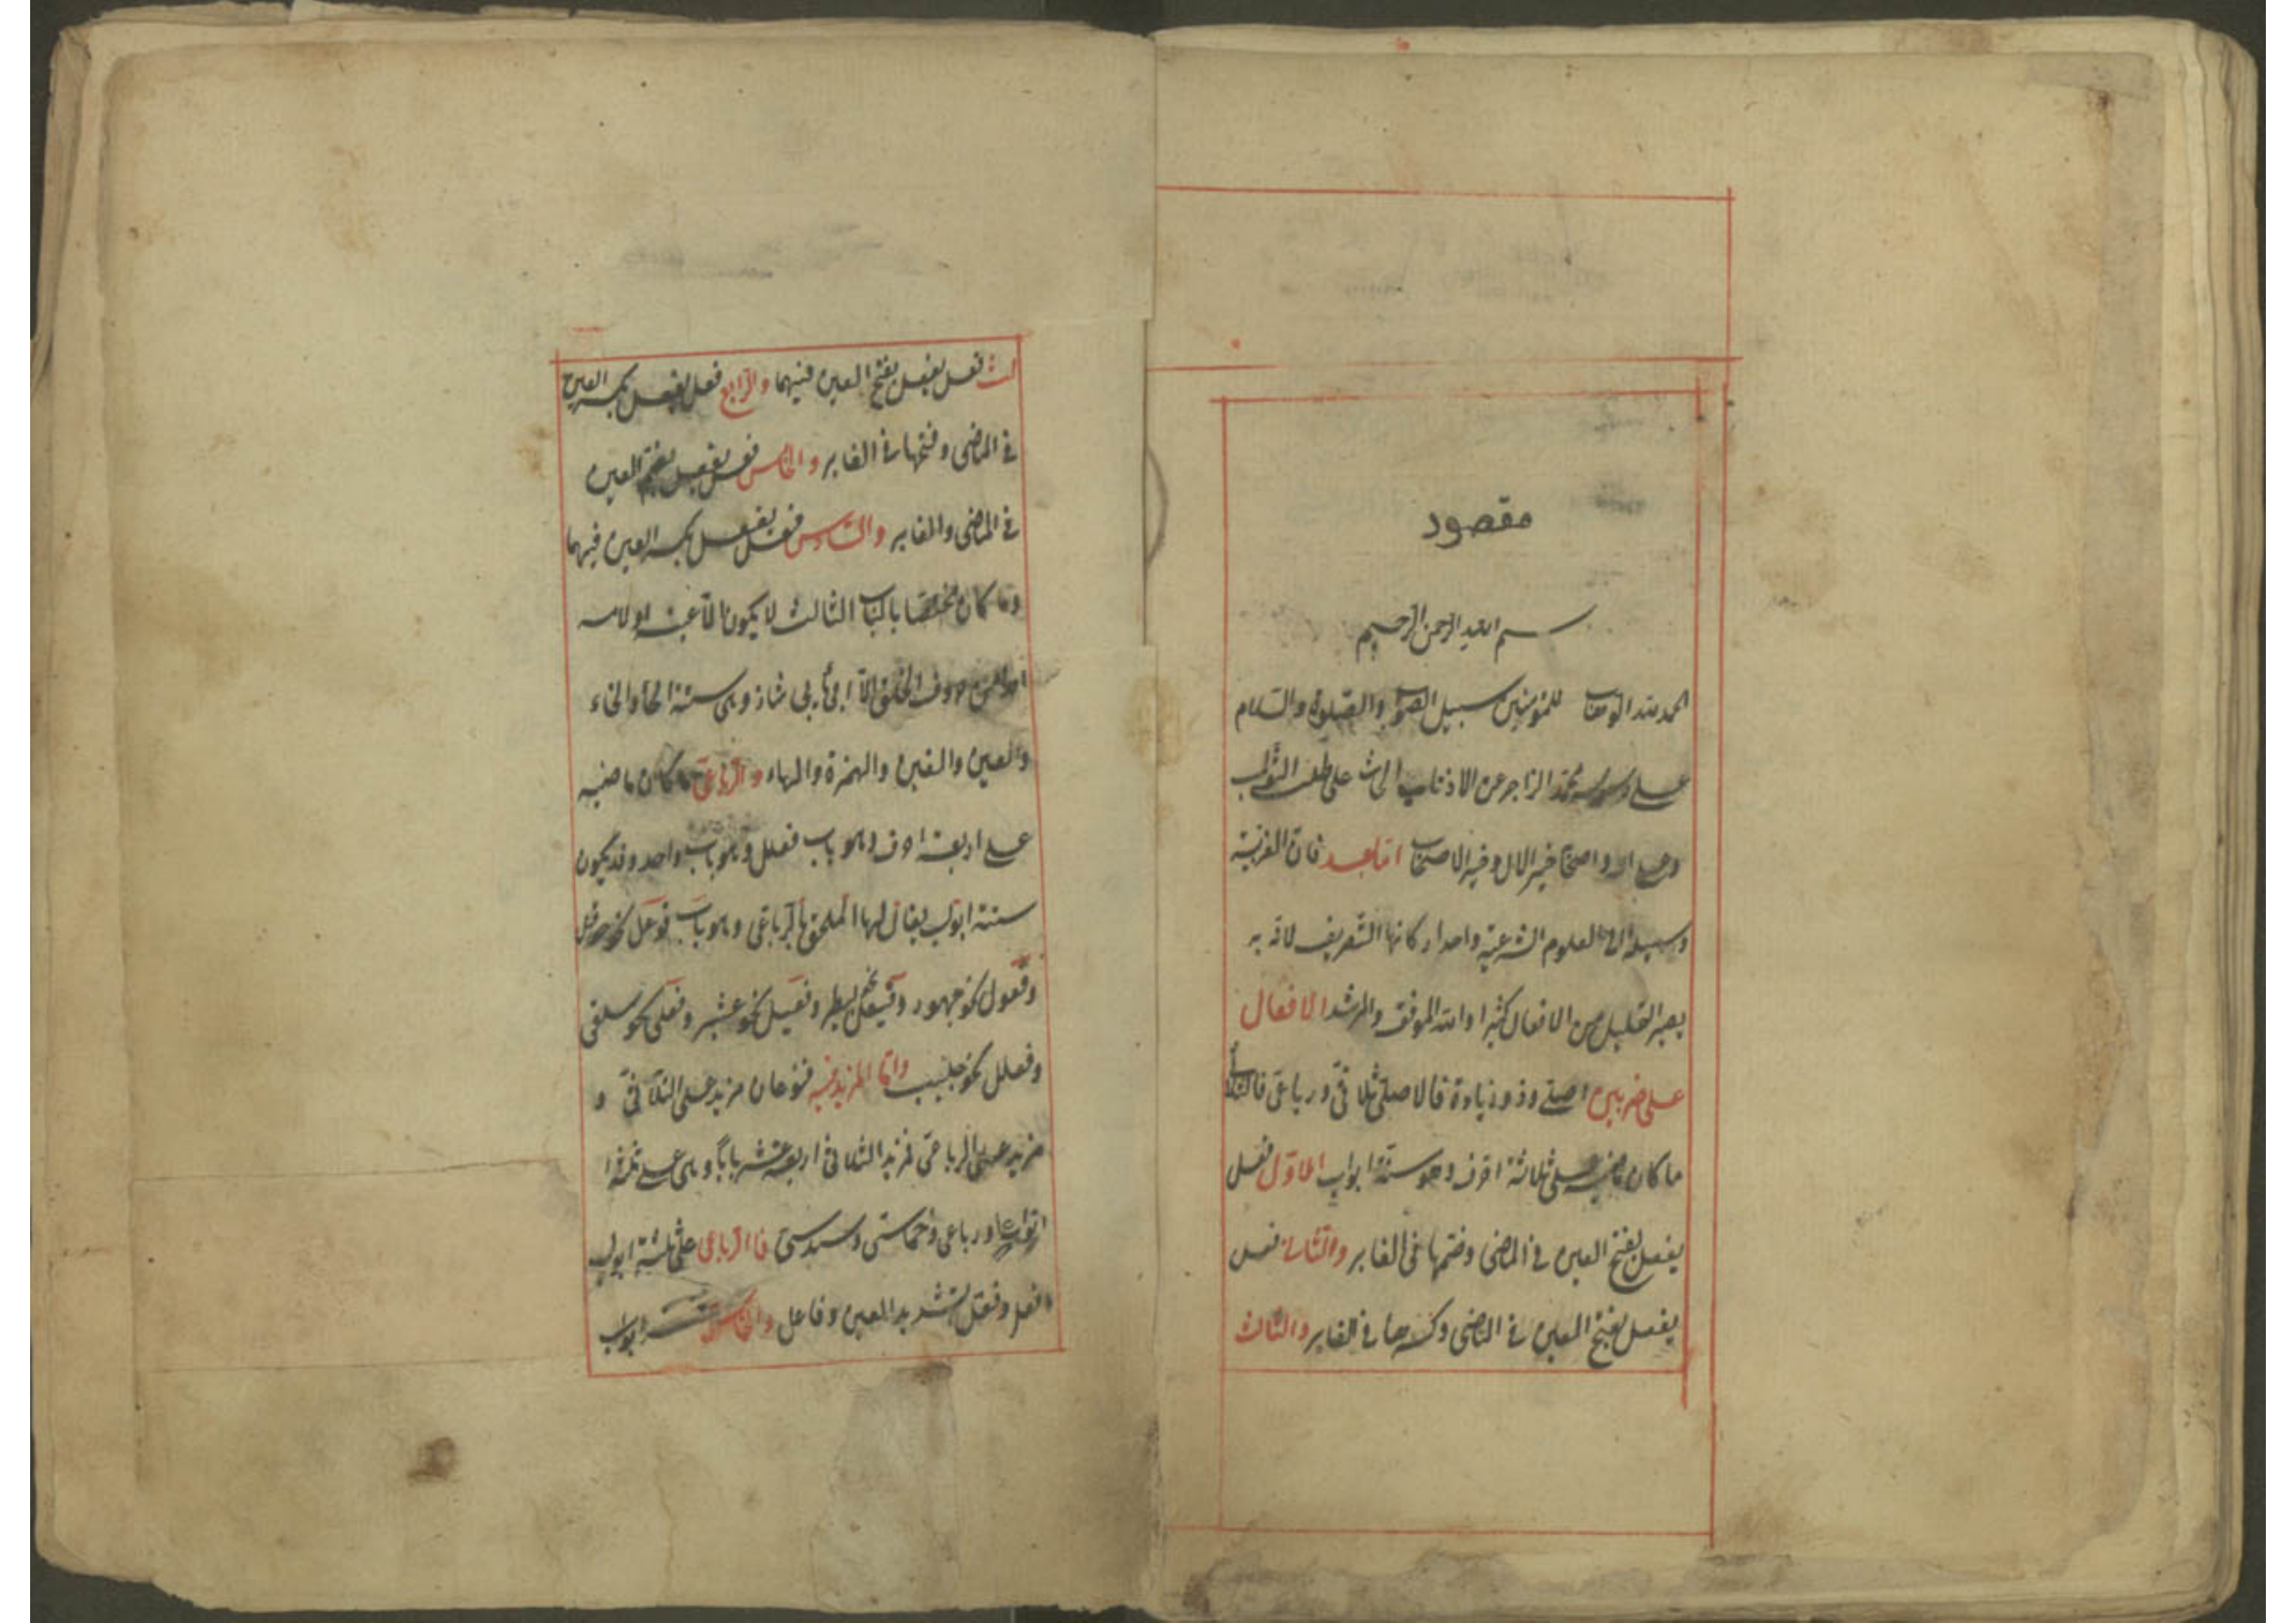 مقصود
بسم الله الرحمن الرحيم
الحمد لله الوهاب للمؤمنين سبيل الصواب والصلوة والسلام
على رسوله محمد الزاجر عن الاذناب الحاث على طلب الثواب
وعلى اله واصحابه خير الال وخير الاصحاب اما بعد فان العربية
وسيلة الى العلوم الشرعية واحد اركانها التصريف لانه به
يصير القليل من الافعال كثيرا والله الموفق والمرشد الافعال
على ضربين اصلى وذو زيادة فالاصلى ثلاثى ورباعى فالثلاثى
ما كان ماضيه على ثلاثة احرف وهو ستة ابواب الاول فعل
يفعل بفتح العين فى الماضى وضمها فى الغابر والثانى فعل
يفعل بفتح العين فى الماضى وكسرها فى الغابر والثالث
لث فعل يفعل بفتح العين فيهما والرابع فعل يفعل بكسر العين
فى الماضى وفتحها فى الغابر والخامس فعل يفعل بضم العين
فى الماضى والغابر والسادس فعل يفعل بكسر العين فيهما
وما كان مختصا بالباب الثالث لا يكون الا عينه او لامه
احدا من حروف الحلق الا ابى يأبى شاذ وهى ستة الحاء والخاء
والعين والغين والهمزة والهاء والرباعى ما كان ماضيه
على اربعة احرف وهو باب فعلل وهو باب واحد وقد يكون
ستة ابواب يقال لها الملحق بالرباعى وهو باب فوعل نحو حوقل
وفعول نحو جهور وفيعل نحو بيطر وفعيل نحو عثير وفعلى نحو سلقى
وفعلل نحو جلبب واما المزيد فيه فنوعان مزيد على الثلاثى و
مزيد على الرباعى فمزيد الثلاثى اربعة عشر بابا وهى على ثلثة
انواع رباعى وخماسى وسداسى فالرباعى على ثلثة ابواب
افعل وفعل بتشديد العين وفاعل والخماسى خمسة ابواب